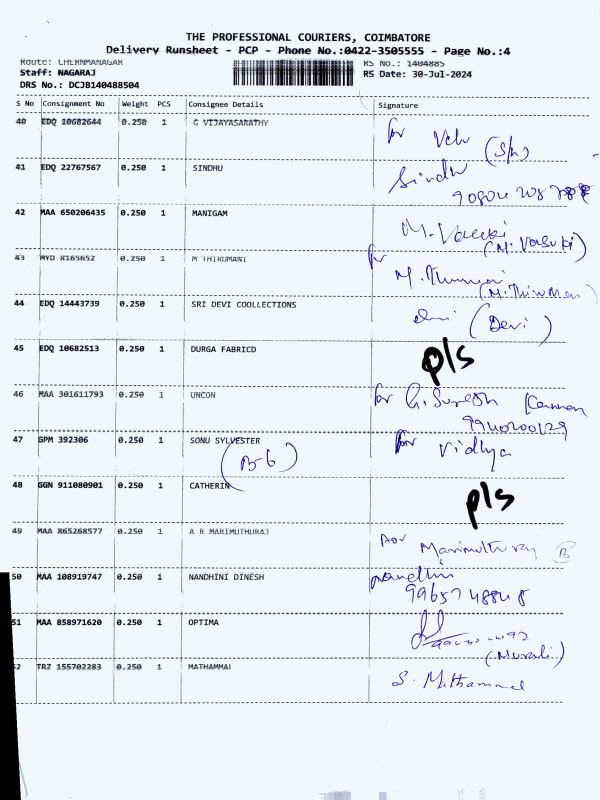 THE PROFESSIONAL COURIERS, COIMBATORE
Delivery Runsheet - PCP - Phone No.:0422-3505555 - Page No.:4
Route: CHERNMANAGAR RS No.: 1404885
Staff: NAGARAJ RS Date: 30-Jul-2024
DRS No.: DCJB140488504
S No Consignment No Weight PCS Consignee Details Signature
40 EDQ 10682644 0.250 1 G VIJAYASARATHY for
41 EDQ 22767567 0.250 1 SINDHU Sindhu
42 MAA 650206435 0.250 1 MANIGAM M.
(M. Vasuki)
43 MYD 8165652 0.250 1 M THIRUMANI for M.
44 EDQ 14443739 0.250 1 SRI DEVI COOLLECTIONS (Devi)
45 EDQ 10682513 0.250 1 DURGA FABRICD p/s
46 MAA 301611793 0.250 1 UNCON for G. Suresh
47 GPM 392306 0.250 1 SONU SYLVESTER for Vidhya
(B-6)
48 GGN 911080901 0.250 1 CATHERIN p/s
49 MAA 865268577 0.250 1 A R MARIMUTHURAJ
50 MAA 108919747 0.250 1 NANDHINI DINESH nandhini
51 MAA 858971620 0.250 1 OPTIMA
(Murali)
52 TRZ 155702283 0.250 1 MATHAMMAI S.